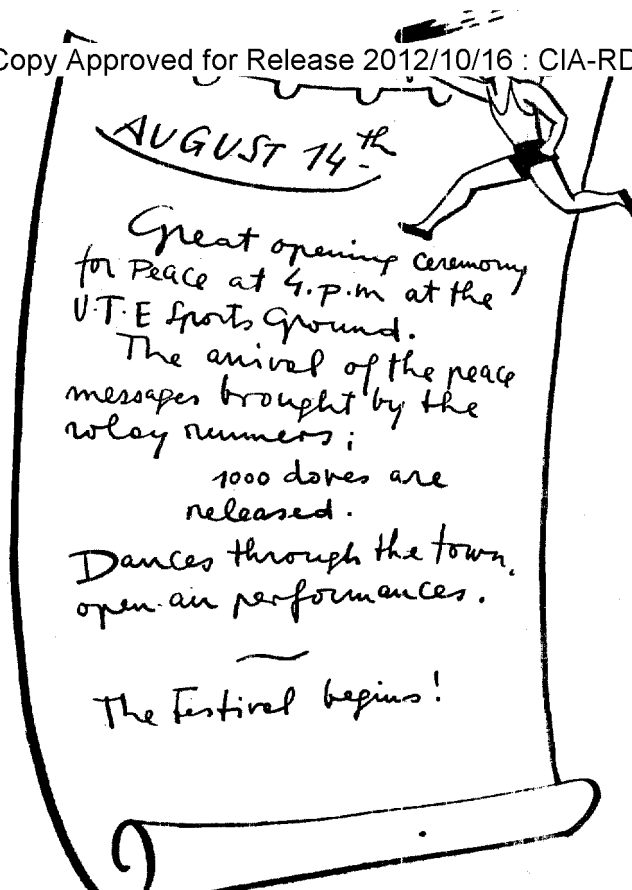 Copy Approved for Release 2012/10/16 : CIA-RD
AUGUST 14th
Great opening ceremony
for Peace at 4.p.m at the
U.T.E Sports Ground.
The arrival of the peace
messages brought by the
relay runners;
1000 doves are
released.
Dances through the town,
open-air performances.
The Festival begins!